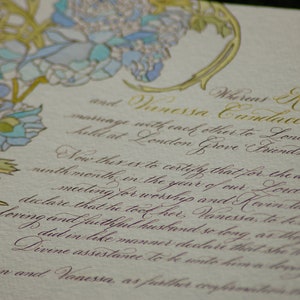 Whereas
and Vanessa Candace
marriage with each other to
held at London Grove Friends
Now this is to certify that for the
ninth month, in the year of our
meeting for worship and Kevin
declare that he took her, Vanessa, to be
loving and faithful husband so long as
did in like manner declare that she
Divine assistance to be unto him a
and Vanessa, as further confirmation